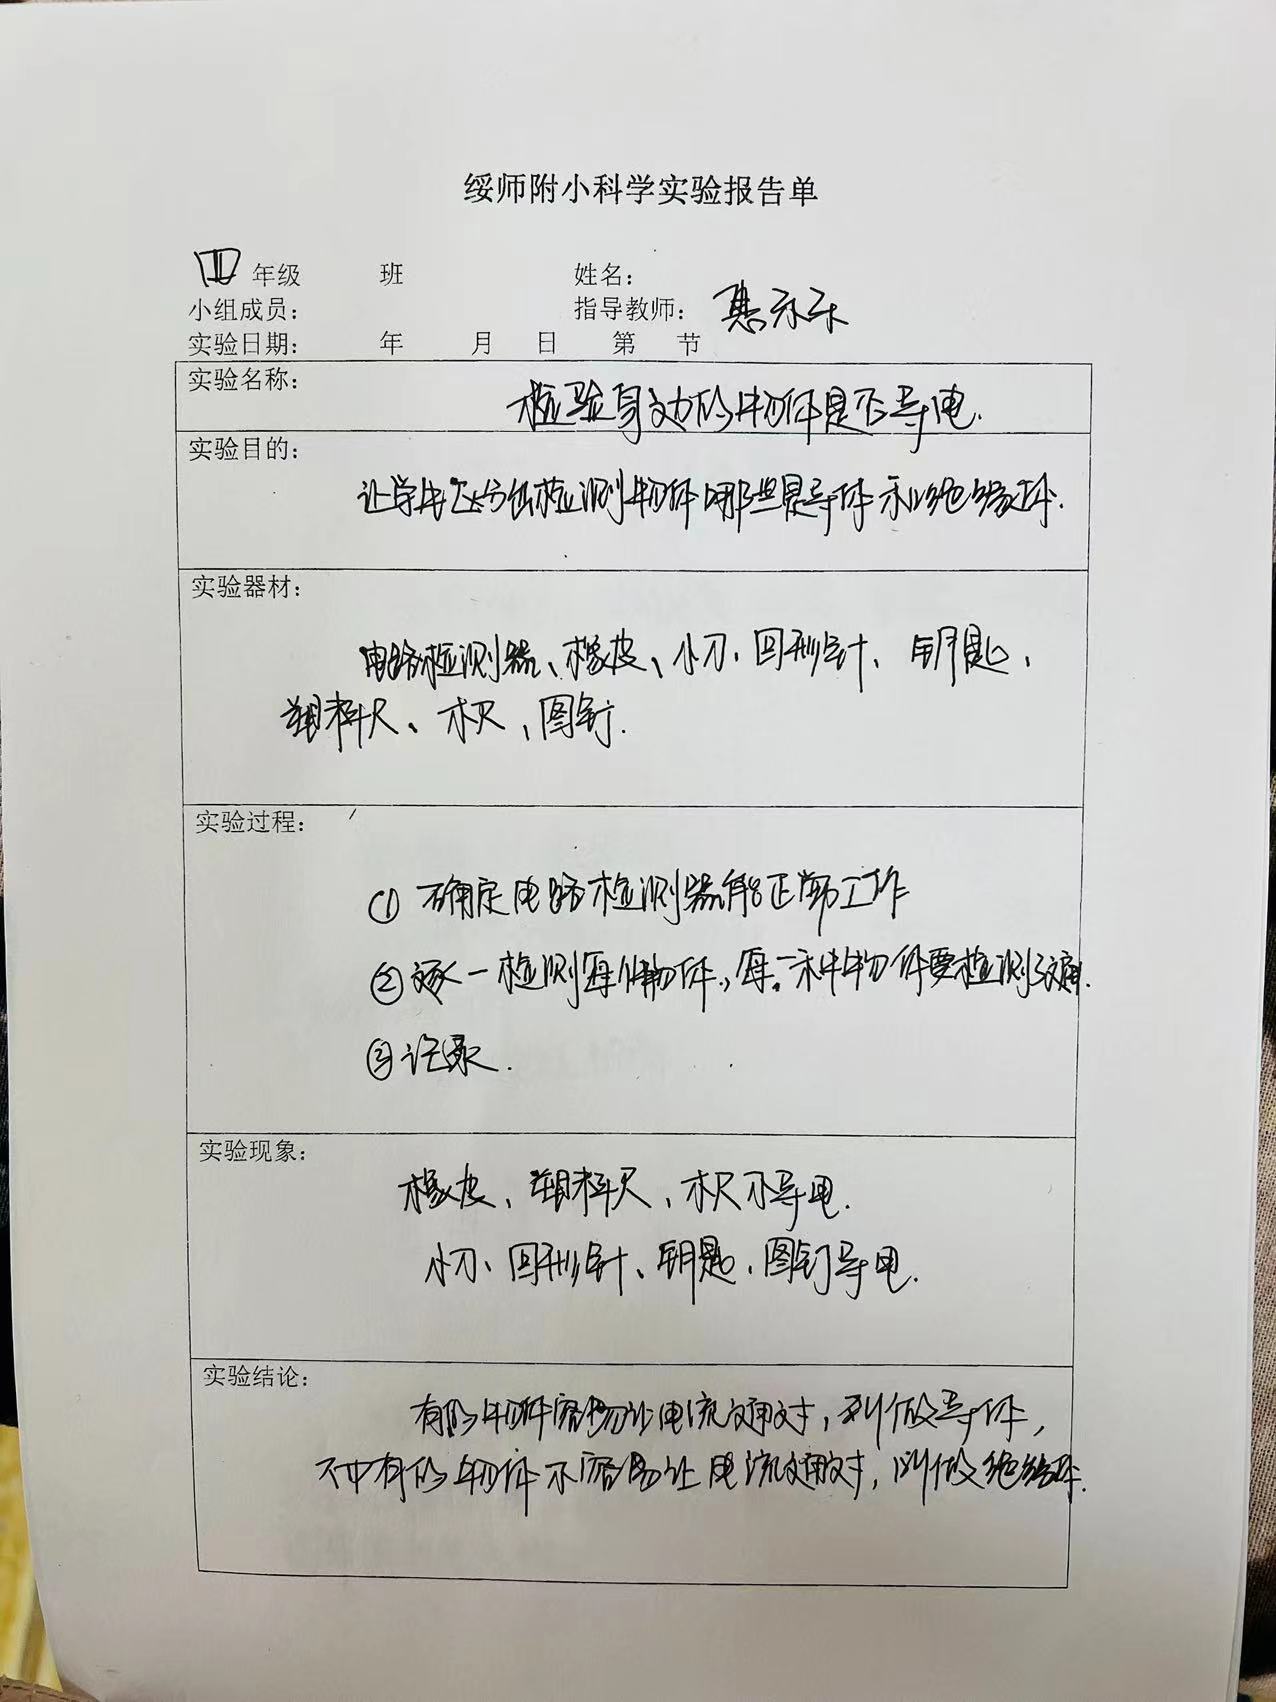 绥师附小科学实验报告单
四年级 班 姓名:
小组成员: 指导教师:
实验日期: 年 月 日 第 节
实验名称:
检验身边的物体是否导电.
实验目的:
让学生区分出检测物体哪些是导体和绝缘体.
实验器材:
电路检测器、橡皮、小刀、回形针、钥匙、
塑料尺、木尺、图钉.
实验过程:
① 确定电路检测器能正常工作
② 逐一检测每件物体,每一种物体要检测两遍.
③ 记录.
实验现象:
橡皮、塑料尺、木尺不导电.
小刀、回形针、钥匙、图钉导电.
实验结论:
有的物体容易让电流通过,叫做导体,
有的物体不容易让电流通过,叫做绝缘体.